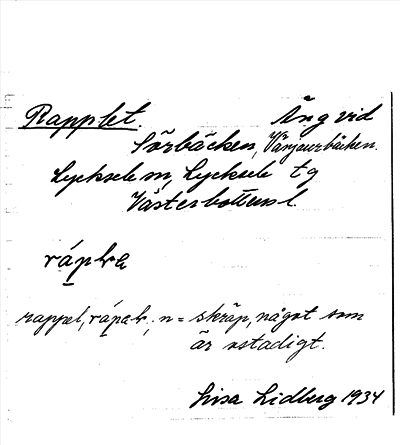 Rapplet. Äng vid
Sörbäcken, Vänjaurbäcken.
Lycksele sn, Lycksele tg
Västerbottens l.
rápḷɐ
rappel, rápal, n = skräp, något som
är ostadigt.
Lisa Lidberg 1934